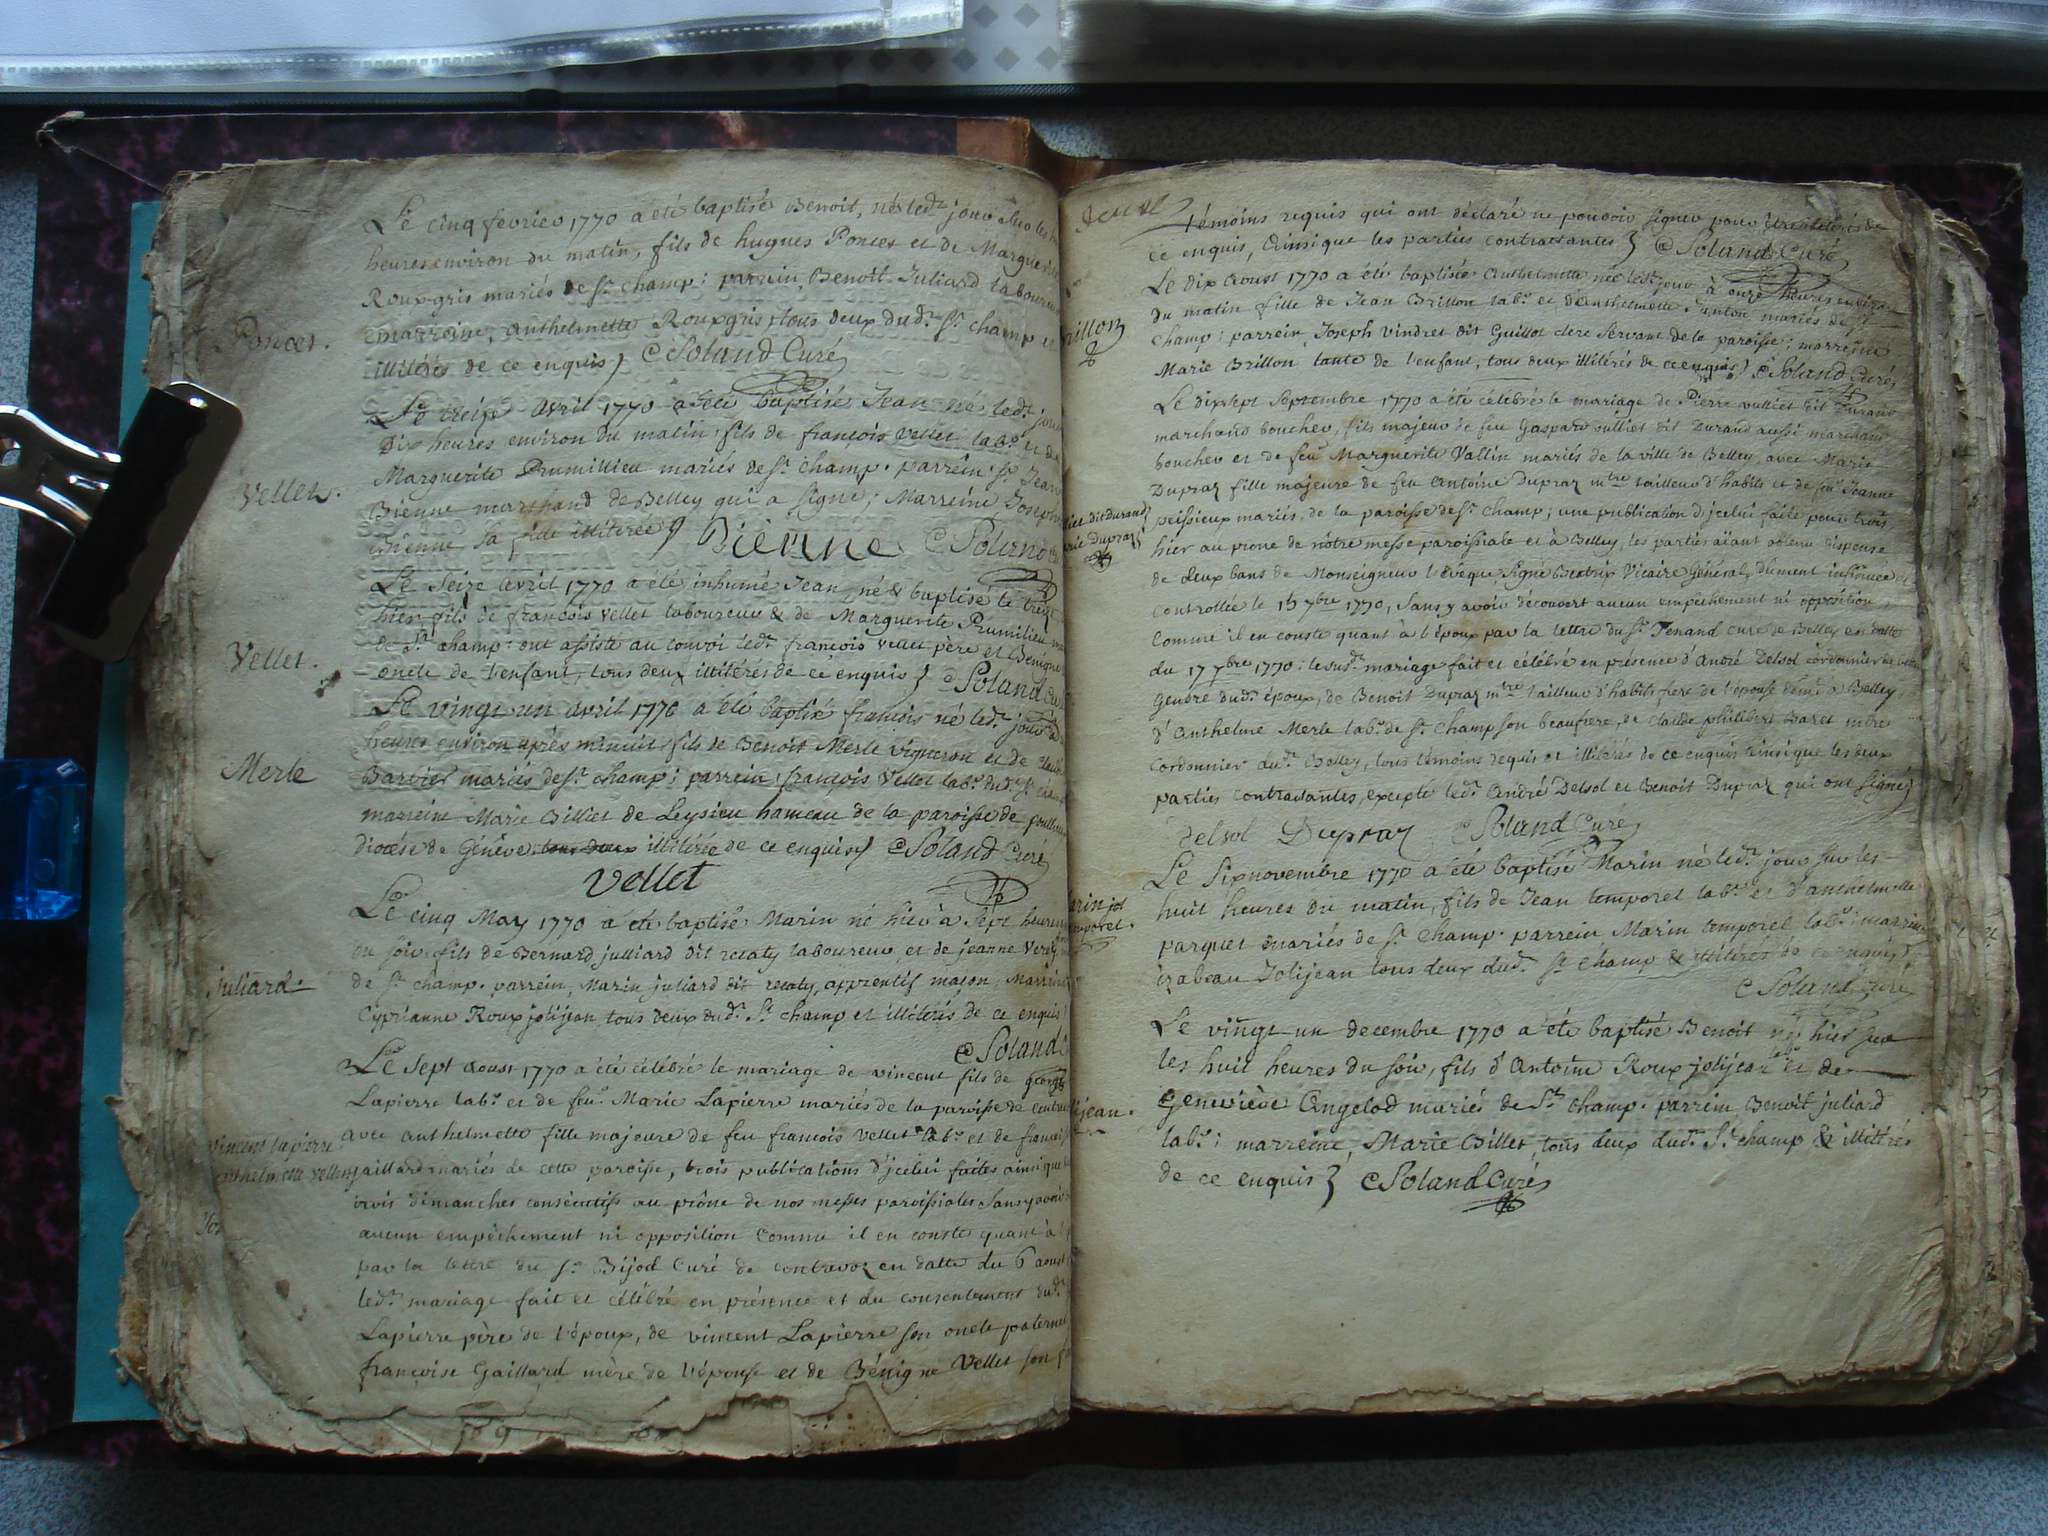 Le cinq fevrier 1770 a été baptisé Benoit, né led.t jour
heures environ du matin, fils de hugues Ponces et de Marguerite
Rouxgris mariés de S.t champ; parrein Benoit Juliard laboureur
Ponces.
marreine, anthelmette Rouxgris, tous deux dud.t S.t champ et
illitérés de ce enquis) Soland Curé
Le treize avril 1770 a été baptisé Jean né led.t jour
Dix heures environ du matin, fils de francois Vellet lab.r et de
Marguerite Prumilieu mariés de S.t champ. parrein S.r Jean
Vellet.
Bienne marchand de Belley qui a signé; Marreine, Joseph
Bienne sa fille illitérée) Bienne Soland
Le Seize avril 1770 a été inhumé Jean né & baptisé le treize
hier, fils de francois Vellet laboureur & de Marguerite Prumilieu
Vellet.
de S.t champ: ont assisté au convoi led.t francois Vellet père et Benigne
oncle de l'enfant, tous deux illitérés de ce enquis) Soland
Le vingt un avril 1770 a été baptisé francois né led.t jour à
heures environ après minuit, fils de Benoit Merle vigneron et de
Merle
Barbier mariés de S.t champ; parrein francois Vellet lab.r dud.t S.t champ
marreine Marie Billiet de Leysieu hameau de la paroisse de
diocése de Génève tous deux illitérée de ce enquis) Soland Curé
Vellet
Le cinq May 1770 a été baptisé Marin né hier à sept heures
du soir, fils de Bernard julliard dit recaty laboureur, et de jeanne
juliard.
de S.t champ. parrein, Marin juliard dit recaty, apprentif maçon, Marreine
Cyprianne Roux jolijean tous deux dud.t S.t champ et illitérés de ce enquis
Soland
Le sept Aoust 1770 a été célébré le mariage de vincent fils de george
Lapierre lab.r et de feu.e Marie Lapierre mariés de la paroisse de
avec anthelmette fille majeure de feu francois Vellet lab.r et de
vincent lapierre
anthelmette vellet
gaillard mariés de cette paroisse, trois publications d'jcelui faites ainsi que
trois dimanches consécutifs au prône de nos messes paroissiales Sans y avoir
aucun empêchement ni opposition Comme il en conste quant à
par la lettre du S.r Bijod Curé de contrevoz en datte du 6 aoust
led.t mariage fait et célébré en présence et du consentement dud.t
Lapierre père de l'époux, de vincent Lapierre son oncle paternel
françoise Gaillard mère de l'épouse et de Bénigne Vellet son
témoins requis qui ont déclaré ne pouvoir signer pour être illitérés de
ce enquis, Ainsi que les parties contractantes) Soland Curé
Le Dix Aoust 1770 a été baptisée Anthelmette née led.t jour à onze heures environ
Du matin fille de Jean Brillon lab.r et d'anthelmette mariés de S.t
rillon
champ; parrein, Joseph Vindret dit Guillot clerc servant de la paroisse; marreine
Marie Brillon tante de l'enfant, tous deux illitérés de ce enquis) Soland Curé
Le dixsept Septembre 1770 a été célébré le mariage de Pierre vulliet dit Durand
marchand boucher, fils majeur de feu Gaspard vulliet dit Durand aussi marchand
boucher et de feu.e Marguerite Vallin mariés de la ville de Belley, avec Marie
Dupraz fille majeure de feu Antoine Dupraz m.tre tailleur d'habits et de feu.e Jeanne
dit durand
Dupraz
peissieux mariés, de la paroisse de S.t champ; une publication d'jcelui faite pour trois
hier au prone de nôtre messe paroissiale et à Belley, les parties aïant obtenu dispense
de deux bans de Monseigneur l'évêque Signé Vicaire Général, dument insinuée et
controllée le 15 7bre 1770, Sans y avoir découvert aucun empêchement ni opposition,
Comme il en conste quant à l'époux par la lettre du S.r Tenand curé de Belley en datte
du 17 7bre 1770: le susd.t mariage fait et célébré en présence d'André Delsol cordonnier
Gendre dud.t époux, de Benoit Dupraz m.tre tailleur d'habits frere de l'épouse Belley,
d'Anthelme Merle lab.r de S.t Champ son beaufrere, de claude philibert m.tre
Cordonnier dud.t Belley, tous témoins requis et illitérés de ce enquis ainsi que les deux
parties contractantes, excepté led.t André Delsol et Benoit Dupraz qui ont signé)
delsol Dupraz Soland Curé
Le Six novembre 1770 a été baptisé Marin né led.t jour sur les
huit heures du matin, fils de Jean temporel lab.r et d'anthelmette
parquet mariés de S.t champ. parrein Marin temporel lab.r; marreine
izabeau Jolijean tous deux dud.t S.t champ & illitérés de ce enquis)
Soland Curé
Le vingt un decembre 1770 a été baptisé Benoit né hier sur
les huit heures du soir, fils d'Antoine Roux jolijean lab.r et de
Geneviève Angelod mariés de S.t champ. parrein Benoit juliard
jean.
lab.r; marreine, Marie Billet, tous deux dud.t S.t champ & illitérés
de ce enquis) Soland Curé